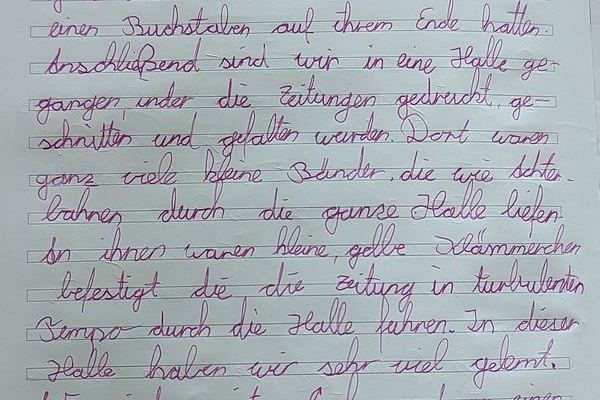 einen Buchstaben auf ihrem Ende hatten.
Anschließend sind wir in eine Halle ge-
gangen, inder die Zeitungen gedruckt, ge-
schnitten und gefalten wurden. Dort waren
ganz viele kleine Bänder, die wie Achter-
bahnen durch die ganze Halle liefen.
An ihnen waren kleine, gelbe Klämmerchen
befestigt die die Zeitung in turbulenten
Tempo durch die Halle fuhren. In dieser
Halle haben wir sehr viel gelernt.